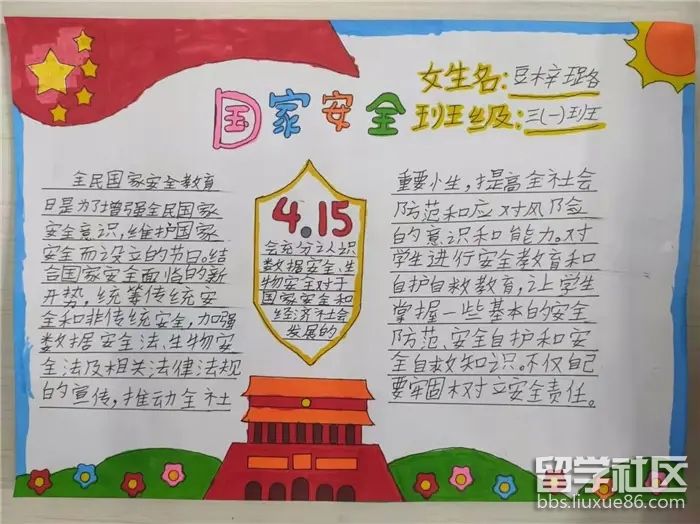 国家安全
女生名：豆梓璐
班级：三(一)班
全民国家安全教育
日是为了增强全民国家
安全意识，维护国家
安全而设立的节日。结
合国家安全面临的新
形势，统筹传统安
全和非传统安全，加强
数据安全法、生物安
全法及相关法律法规
的宣传，推动全社
4.15
会充分认识
数据安全、生
物安全对于
国家安全和
经济社会
发展的
重要小生，提高全社会
防范和应对风险
的意识和能力。对
学生进行安全教育和
自护自救教育，让学生
掌握一些基本的安全
防范、安全自护和安
全自救知识。不仅自己
要牢固树立安全责任。
留学社区
bbs.liuxue86.com